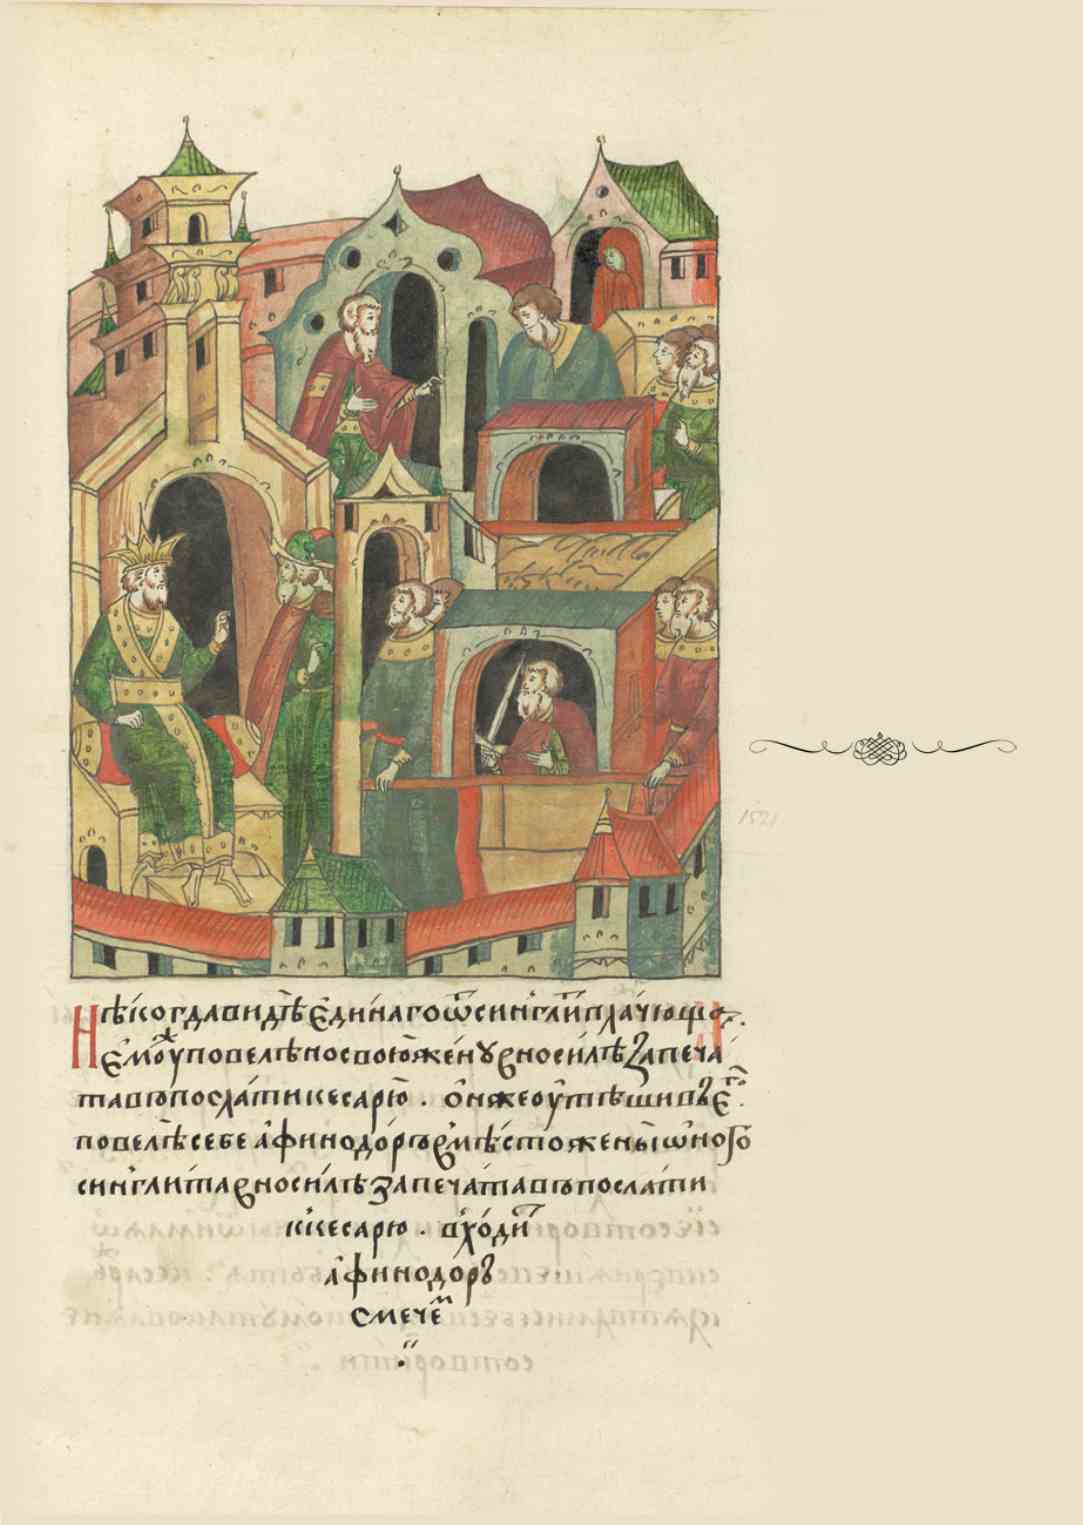 Нѣкогда видѣ единаго ѿ сингли плачющѧ.
емꙋже повелѣно свою женꙋ в носилѣ запеча
тавго послати кесарю. он же оутѣшив его.
повелѣ себе афинодоръ вмѣсто жены оного
синглита в носилѣ запечатав го послати
к кесарю. входит
афинодоръ
с мечем
1521